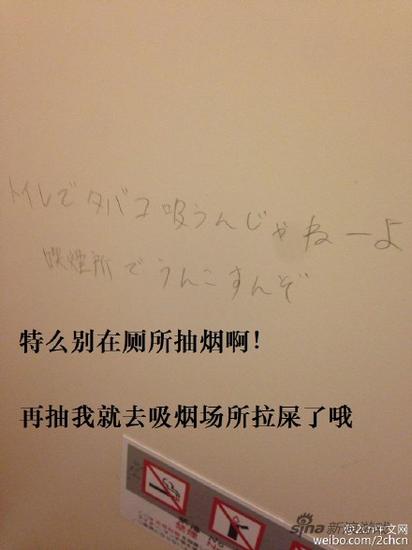 トイレでタバコ吸うんじゃねーよ
喫煙所でうんこすんぞ
特么别在厕所抽烟啊!
再抽我就去吸烟场所拉屎了哦
sina
@2ch中文网
weibo.com/2chcn